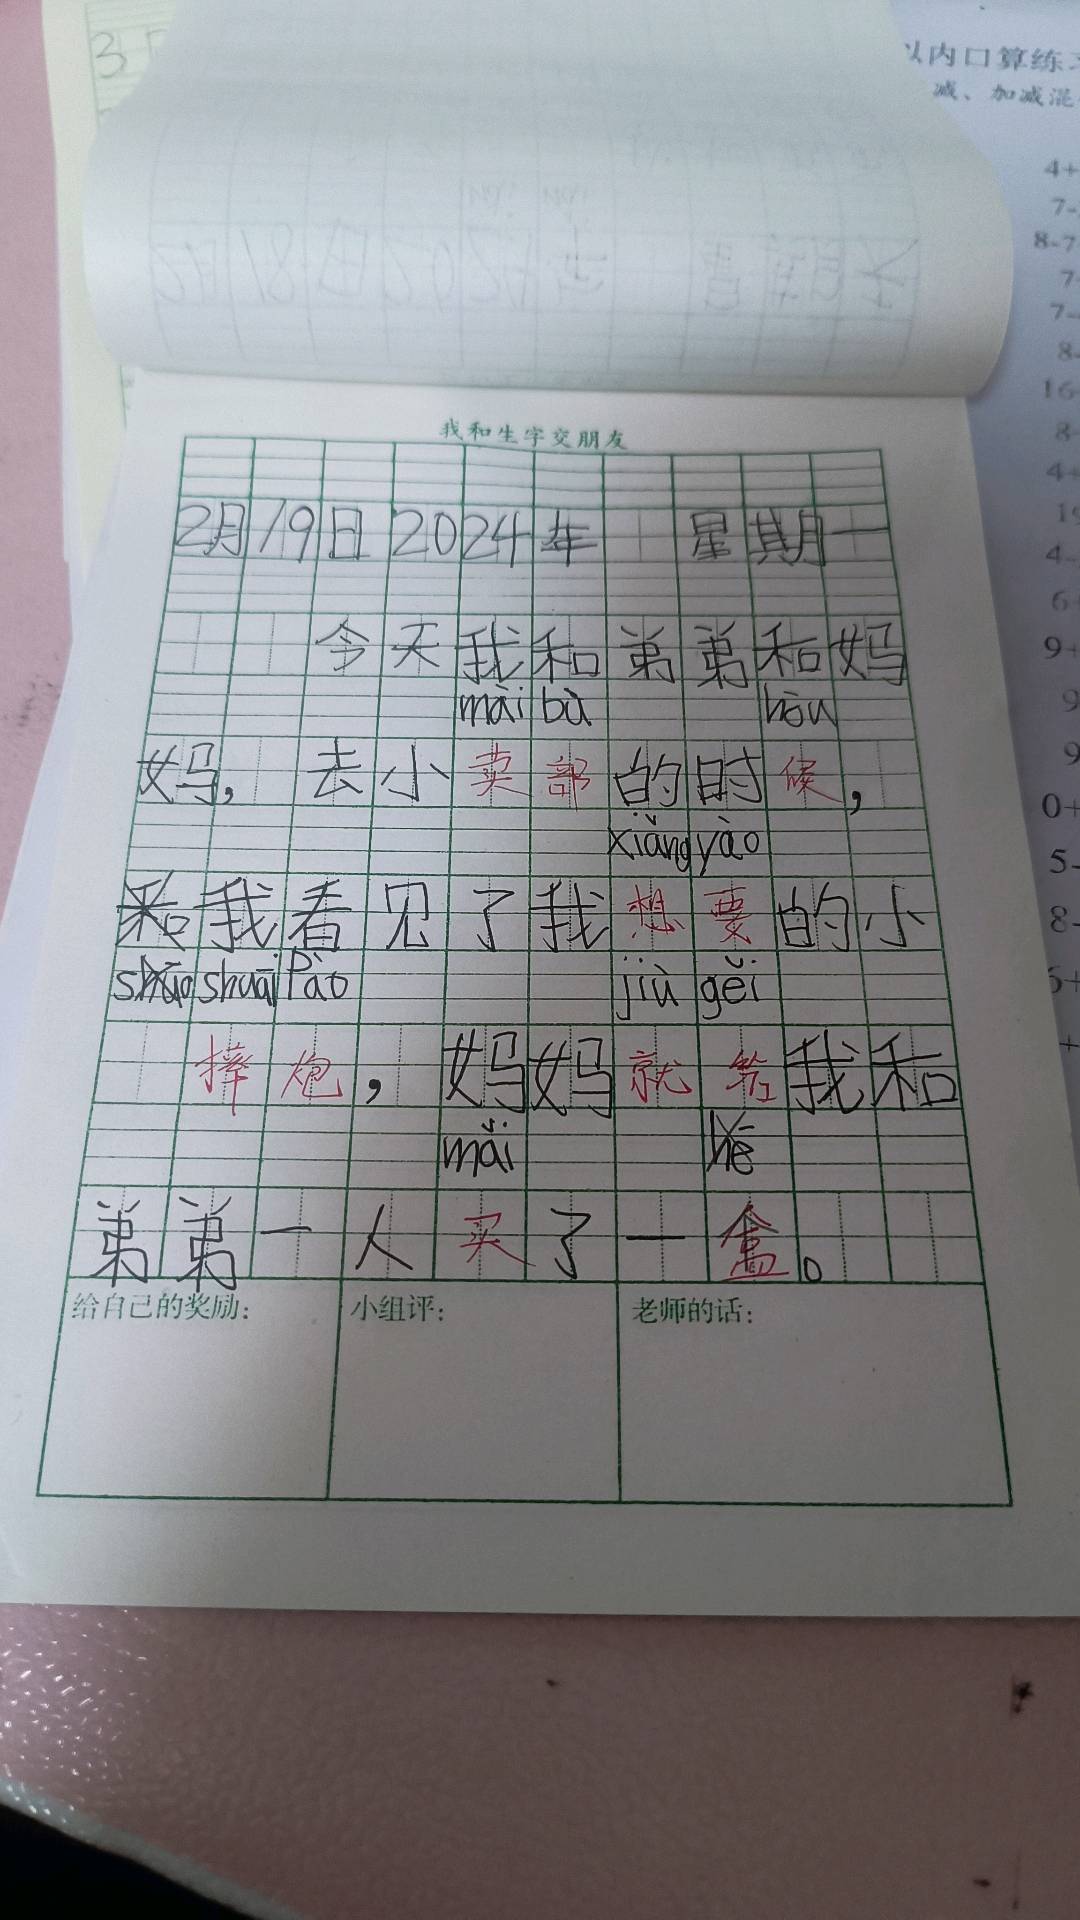 3
以内口算练习
减、加减混
4+
7-
8-7
7-
7-
8-
16-
8-
4+
4-
6+
9+
9
9
0+
5-
8-
5+
我和生字交朋友
2月19日2024年 星期一
今天我和弟弟和妈
mài bù hòu
妈，去小卖部的时候，
xiǎng yào
和我看见了我想要的小
shuāi pào jiù gěi
摔炮，妈妈就给我和
mǎi hé
弟弟一人买了一盒。
给自己的奖励： 小组评： 老师的话：